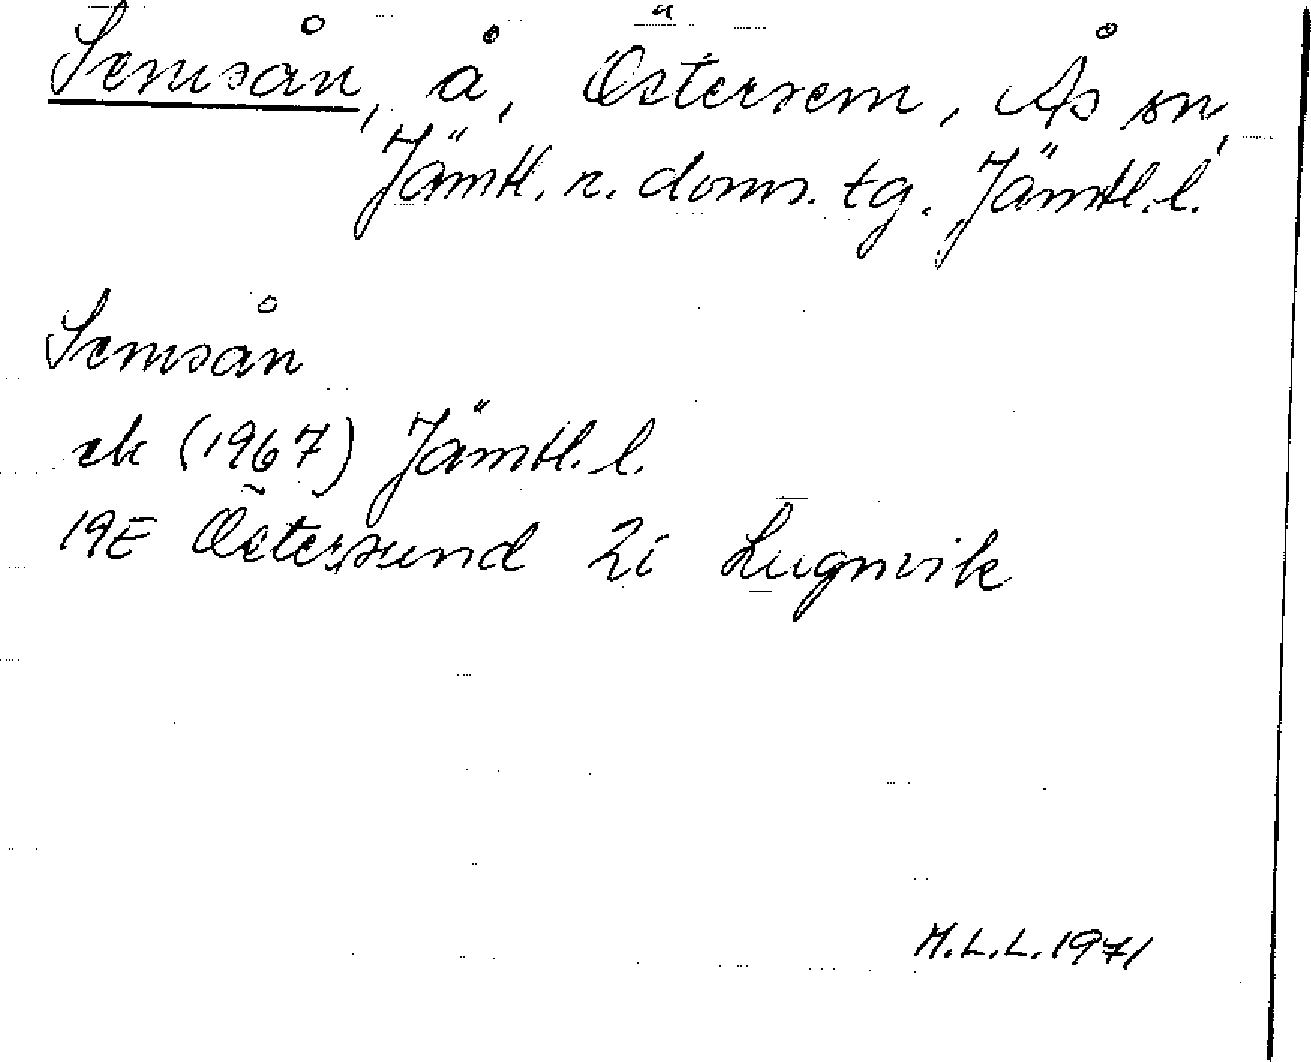 Semsån, å, Östersem, Ås sn,
Jämtl. n. doms. tg. Jämtl. l.
Semsån
ek (1967) Jämtl. l.
19E Östersund 2i Lugnvik
M.L.L. 1971